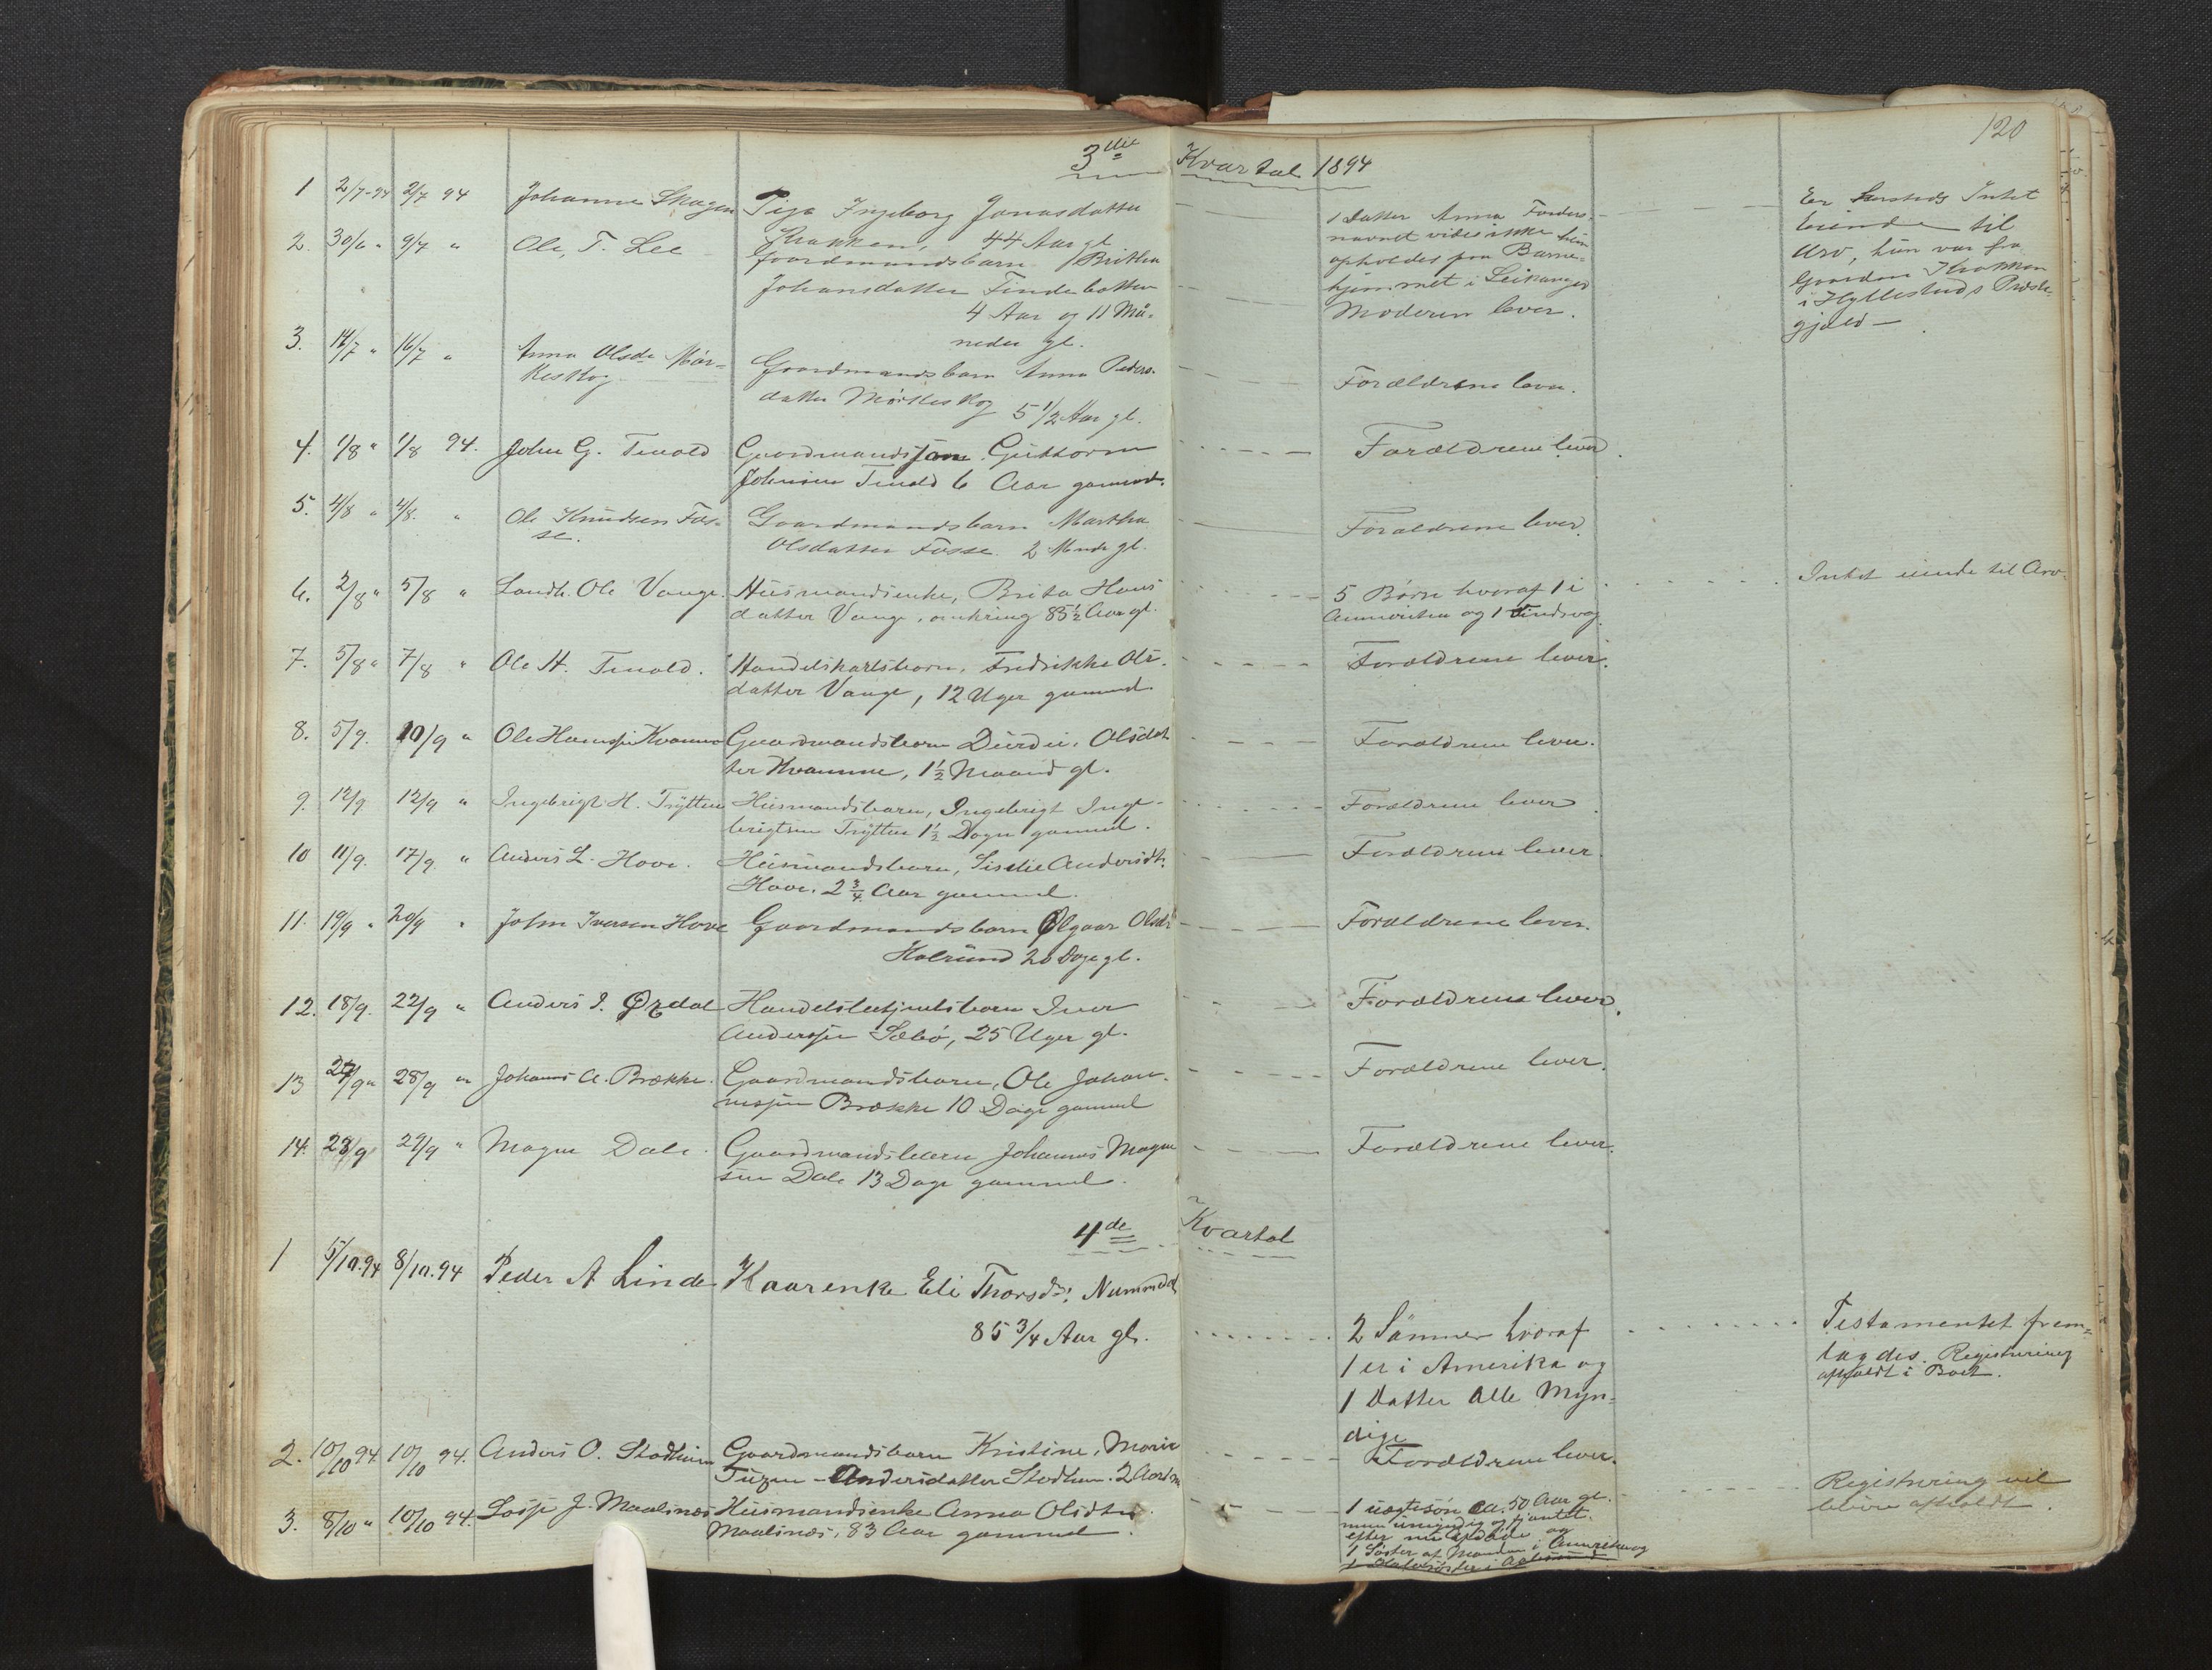 120
3die Kvartal 1894
1 2/7-94 2/7 94 Johanne Skagen Pige Ingeborg Jonasdatter
Krakken, 44 Aar gl
1 Datter Anna
navnet vides ikke hun
opholdes paa Barne-
hjemmet i Leikanger
Er Intet
Eiende til
Arv, hun var fra
Gaarden Krakken
i Hyllestads Præste-
gjæld —
2. 30/6 " 9/7 " Ole, T. Lee Gaardmandsbarn Britha
Johansdatter Findebotten
4 Aar og 11 Må-
neder gl.
Moderen lever.
3. 14/7 " 16/7 " Anna Olsdr Mør-
keskog Gaardmandsbarn Anna Peders-
datter Mørkeskog 5 1/2 Aar gl.
Forældrene lever.
4. 1/8 " 1/8 94. John G. Tenold Gaardmandssøn Guttorm
Johnsen Tenold 6 Aar gammel.
Forældrene lever.
5. 4/8 " 4/8. " Ole Knudsen Fos-
se. Gaardmandsbarn Martha
Olsdatter Fosse. 2 Mndr gl.
Forældrene lever.
6. 2/8 " 5/8 " Landh. Ole Vange. Husmandsenke, Brita Hans
datter Vange, omkring 83 1/2 Aar gl.
5 Børn hvoraf 1 i
Ammerika og 1 sindsvag.
Intet eiende til Arv.
7. 5/8 " 7/8 " Ole H. Tenold. Handelskarlsbarn, Fredrikke Ols-
datter Vange, 12 Uger gammel
Forældrene lever.
8. 5/9. 10/9 " Ole Hansen Kvamme Gaardmandsbarn Durdei, Olsdat
ter Kvamme, 1 1/2 Maaned gl.
Forældrene lever.
9. 12/9 12/9 " Ingebrigt H. Trytten Husmandsbarn, Ingebrigt Inge-
brigtsen Trytten 1 1/2 Døgn gammel.
Forældrene lever.
10 11/9. 17/9 " Anders L. Hove. Husmandsbarn, Andersdt.
Hove. 2 3/4 Aar gammel.
Forældrene lever.
11. 19/9 " 20/9 " John Iversen Hove Gaardmandsbarn Olgaar Olsdr
20 Dage gl.
Forældrene lever.
12. 18/9. 22/9 " Anders I. Ørdal Handelsbetjentsbarn Iver
Andersen Sæbø, 25 Uger gl.
Forældrene lever.
13 27/9 " 28/9 " Johans A. Brække. Gaardmandsbarn, Ole Johan-
nesen Brække 10 Dage gammel
Forældrene lever.
14. 28/9 29/9 " Magne Dale. Gaardmandsbarn Johannes Magne
sen Dale 13 Dage gammel.
Forældrene lever.
4de Kvartal
1 5/10.94 8/10.94 Peder A Linde Kaarenke Eli Thorsdr. Nummedal
85 3/4 Aar gl.
2 Sønner hvoraf
1 er i Amerika og
1 Datter Alle Myn-
dige
Testamentet frem-
lagdes. Registrering
afholdt i Boet.
2. 10/10 94. 10/10 94. Anders O. Stadheim Gaardmandsbarn Kristine, Marie
Andersdatter Stadheim. 2 Aar
Forældrene lever.
3. 8/10 " 10/10 94. Lasse J. Maalsnæs Husmandsenke Anna Olsdtr
Maalsnæs, 83 Aar gammel.
1 uægtesøn ca. 50 Aar gl.
1 Søster af Manden i Amerika og
Registrering vil
blive afholdt.